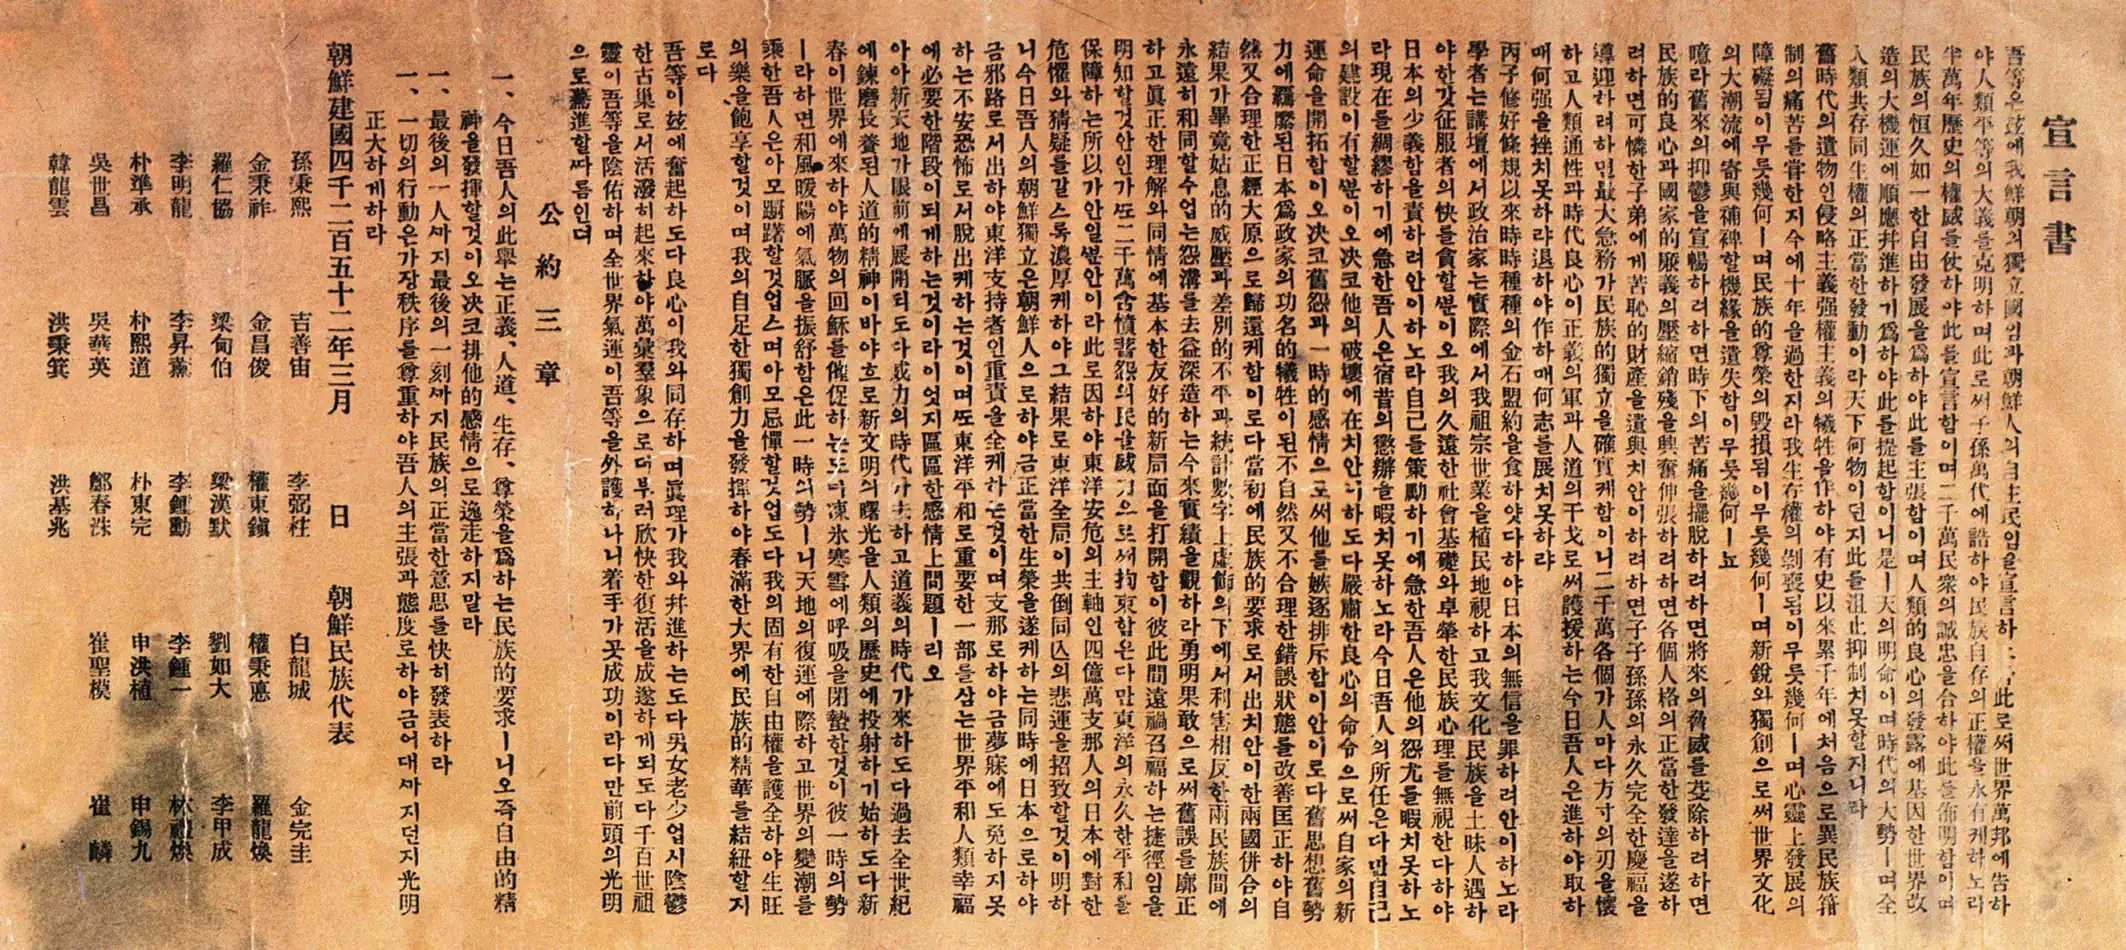 宣言書
吾等은玆에我鮮朝의獨立國임과朝鮮人의自主民임을宣言하노라此로써世界萬邦에告하
야人類平等의大義를克明하며此로써子孫萬代에誥하야民族自存의正權을永有케하노라
半萬年歷史의權威를仗하야此를宣言함이며二千萬民衆의誠忠을合하야此를佈明함이며
民族의恒久如一한自由發展을爲하야此를主張함이며人類的良心의發露에基因한世界改
造의大機運에順應幷進하기爲하야此를提起함이니是ㅣ天의明命이며時代의大勢ㅣ며全
人類共存同生權의正當한發動이라天下何物이던지此를沮止抑制치못할지니라
舊時代의遺物인侵略主義强權主義의犧牲을作하야有史以來累千年에처음으로異民族箝
制의痛苦를嘗한지今에十年을過한지라我生存權의剝喪됨이무릇幾何ㅣ며心靈上發展의
障礙됨이무릇幾何ㅣ며民族的尊榮의毁損됨이무릇幾何ㅣ며新銳와獨創으로써世界文化
의大潮流에寄與補裨할機緣을遺失함이무릇幾何ㅣ뇨
噫라舊來의抑鬱을宣暢하려하면時下의苦痛을擺脫하려하면將來의脅威를芟除하려하면
民族的良心과國家的廉義의壓縮銷殘을興奮伸張하려하면各個人格의正當한發達을遂하
려하면可憐한子弟에게苦恥的財產을遺與치안이하려하면子子孫孫의永久完全한慶福을
導迎하려하면最大急務가民族的獨立을確實케함이니二千萬各個가人마다方寸의刃을懷
하고人類通性과時代良心이正義의軍과人道의干戈로써護援하는今日吾人은進하야取하
매何强을挫치못하랴退하야作하매何志를展치못하랴
丙子修好條規以來時時種種의金石盟約을食하얏다하야日本의無信을罪하려안이하노라
學者는講壇에서政治家는實際에서我祖宗世業을植民地視하고我文化民族을土昧人遇하
야한갓征服者의快를貪할ᄲᅮᆫ이오我의久遠한社會基礎와卓犖한民族心理를無視한다하야
日本의少義함을責하려안이하노라自己를策勵하기에急한吾人은他의怨尤를暇치못하노
라現在를綢繆하기에急한吾人은宿昔의懲辦을暇치못하노라今日吾人의所任은다만自己
의建設이有할ᄲᅮᆫ이오決코他의破壞에在치안이하도다嚴肅한良心의命令으로써自家의新
運命을開拓함이오決코舊怨과一時的感情으로써他를嫉逐排斥함이안이로다舊思想舊勢
力에羈縻된日本爲政家의功名的犧牲이된不自然又不合理한錯誤狀態를改善匡正하야自
然又合理한正經大原으로歸還케함이로다當初에民族的要求로서出치안이한兩國倂合의
結果가畢竟姑息的威壓과差別的不平과統計數字上虛飾의下에서利害相反한兩民族間에
永遠히和同할수업는怨溝를去益深造하는今來實績을觀하라勇明果敢으로써舊誤를廓正
하고眞正한理解와同情에基本한友好的新局面을打開함이彼此間遠禍召福하는捷徑임을
明知할것안인가ᄯᅩ二千萬含憤蓄怨의民을威力으로써拘束함은다만東洋의永久한平和를
保障하는所以가안일ᄲᅮᆫ안이라此로因하야東洋安危의主軸인四億萬支那人의日本에對한
危懼와猜疑를갈스록濃厚케하야그結果로東洋全局이共倒同亡의悲運을招致할것이明하
니今日吾人의朝鮮獨立은朝鮮人으로하야금正當한生榮을遂케하는同時에日本으로하야
금邪路로서出하야東洋支持者인重責을全케하는것이며支那로하야금夢寐에도免하지못
하는不安恐怖로서脫出케하는것이며ᄯᅩ東洋平和로重要한一部를삼는世界平和人類幸福
에必要한階段이되게하는것이라이엇지區區한感情上問題ㅣ리오
아아新天地가眼前에展開되도다威力의時代가去하고道義의時代가來하도다過去全世紀
에鍊磨長養된人道的精神이바야흐로新文明의曙光을人類의歷史에投射하기始하도다新
春이世界에來하야萬物의回蘇를催促하는도다凍氷寒雪에呼吸을閉蟄한것이彼一時의勢
ㅣ라하면和風暖陽에氣脈을振舒함은此一時의勢ㅣ니天地의復運에際하고世界의變潮를
乘한吾人은아모躕躇할것업스며아모忌憚할것업도다我의固有한自由權을護全하야生旺
의樂을飽享할것이며我의自足한獨創力을發揮하야春滿한大界에民族的精華를結紐할지
로다
吾等이玆에奮起하도다良心이我와同存하며眞理가我와幷進하는도다男女老少업시陰鬱
한古巢로서活潑히起來하야萬彙羣象으로더부러欣快한復活을成遂하게되도다千百世祖
靈이吾等을陰佑하며全世界氣運이吾等을外護하나니着手가곳成功이라다만前頭의光明
으로驀進할ᄯᅡ름인뎌
公約三章
一、今日吾人의此擧는正義、人道、生存、尊榮을爲하는民族的要求ㅣ니오즉自由的精
神을發揮할것이오決코排他的感情으로逸走하지말라
一、最後의一人ᄭᅡ지最後의一刻ᄭᅡ지民族의正當한意思를快히發表하라
一、一切의行動은가장秩序를尊重하야吾人의主張과態度로하야금어대ᄭᅡ지던지光明
正大하게하라
朝鮮建國四千二百五十二年三月 日 朝鮮民族代表
孫秉熙 吉善宙 李弼柱 白龍城 金完圭
金秉祚 金昌俊 權東鎭 權秉悳 羅龍煥
羅仁協 梁甸伯 梁漢默 劉如大 李甲成
李明龍 李昇薰 李鍾勳 李鍾一 林禮煥
朴準承 朴熙道 朴東完 申洪植 申錫九
吳世昌 吳華英 鄭春洙 崔聖模 崔麟
韓龍雲 洪秉箕 洪基兆